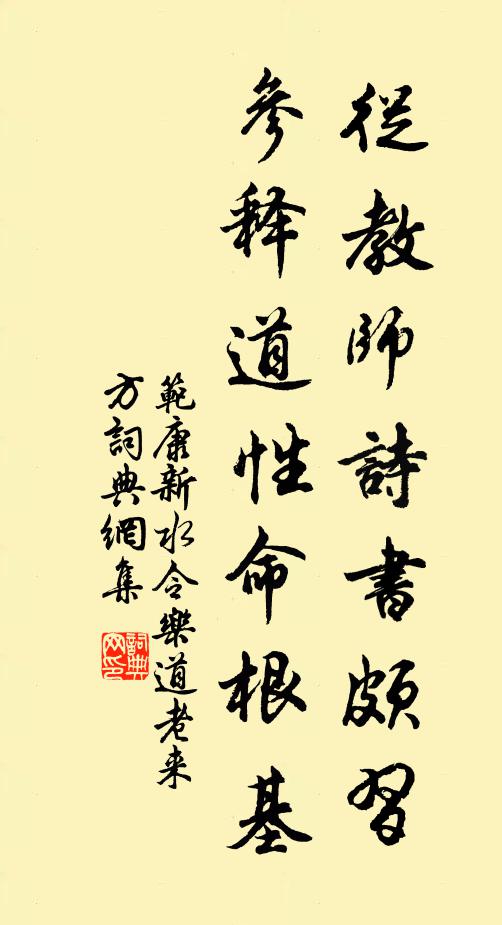 從教師詩書頗習
參释道性命根基
範康新水令樂道老来
方詞典網集
詞典网印